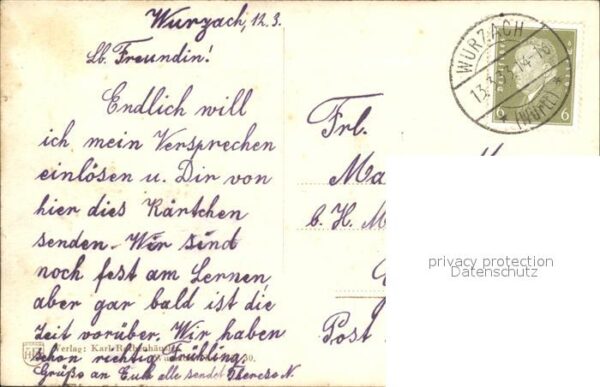 Wurzach, 12.3.
Lb. Freundin!
Endlich will
ich mein Versprechen
einlösen u. Dir von
hier dies Kärtchen
senden. Wir sind
noch fest am Lernen,
aber gar bald ist die
Zeit vorüber. Wir haben
schon richtig Frühling.
Grüße an Euch alle sendet Therese N.
Verlag: Karl
WURZACH
13.3.33.14-16
(WÜRTT)
6 6
Frl.
Ma
b. H. M
Post
privacy protection
Datenschutz